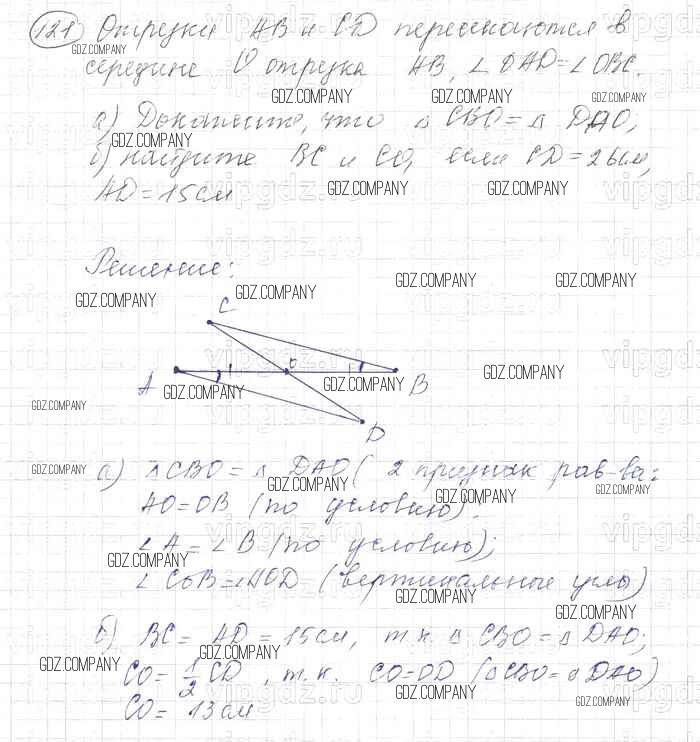 121 Отрезки AB и CD пересекаются в
середине O отрезка AB, ∠OAD=∠OBC.
а) Докажите, что △CBO=△DAO;
б) найдите BC и CO, если CD=26см,
AD=15см
Решение:
C
A
O
B
D
а) △CBO=△DAO (2 признак рав-ва:
AO=OB (по условию);
∠A=∠B (по условию);
∠COB=∠AOD (вертикальные углы)
б) BC=AD=15см, т.к. △CBO=△DAO;
CO=1/2 CD, т.к. CO=OD (△CBO=△DAO)
CO=13см
GDZ.COMPANY
vipgdz.ru